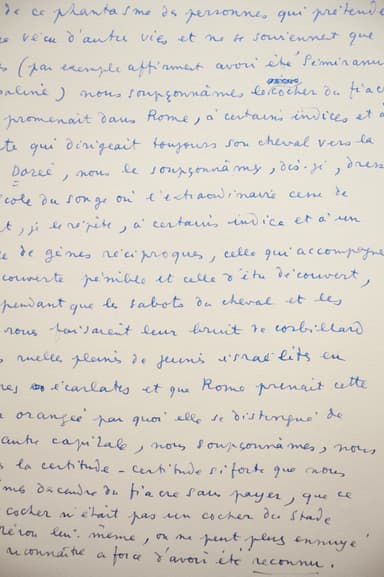 de ce phantasme des personnes qui prétende
vécu d'autre vies et ne se souviennent que
(par exemple affirment avoir été Sémiramis
) nous soupçonnâmes le cocher du fiacre
promenait dans Rome, à certains indices et à
te qui dirigeait toujours son cheval vers la
Dorée, nous le soupçonnâmes, dis-je, dress
école du songe où l'extraordinaire cesse de
t, je le répète, à certains indice et à un
e de gênes réciproques, celle qui accompagne
couverte pénible et celle d'être découvert,
pendant que les sabots du cheval et les
roues faisaient leur bruit de corbillard
ruelles pleines de jeunes israélites en
res écarlates et que Rome prenait cette
orangée par quoi elle se distingue de
autre capitale, nous soupçonnâmes, nous
la certitude - certitude si forte que nous
mes descendre du fiacre sans payer, que ce
cocher n'était pas un cocher du Stade
Néron lui-même, on ne peut plus ennuyé
reconnaître a force d'avoir été reconnu.